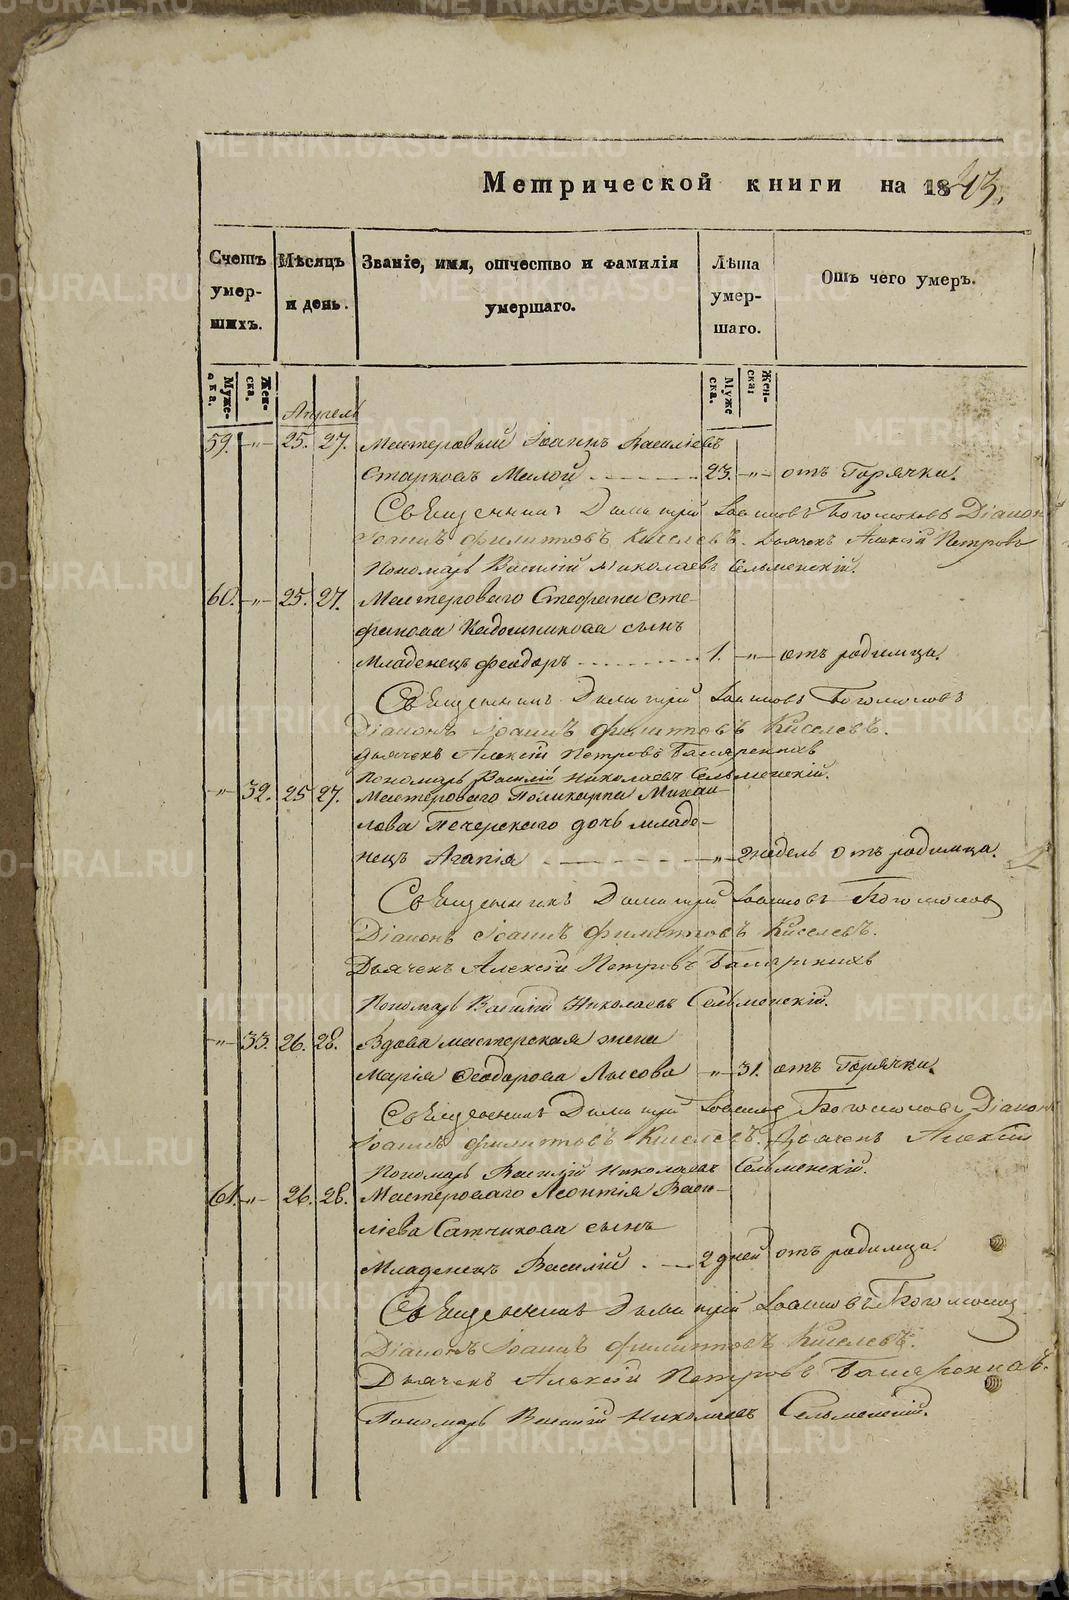 Метрической книги на 1843.
Счетъ умершихъ.
Мѣсяцъ и день.
Званіе, имя, отчество и фамилія умершаго.
Лѣта умершаго.
Отъ чего умеръ.
Мужеска.
Женска.
Мужеска.
Женска:
Апрель
59. —"— 25. 27. Мастеровый Іоаннъ Василіевъ
Старковъ Милой 23. —"— отъ Горячки.
Священникъ Димитрій Іоанновъ Богомоловъ Діаконъ
Іоаннъ Филиповъ Киселевъ. Дьячекъ Алексій Петровъ
Пономарь Василій Николаевъ Сельменскій.
60. —"— 25. 27. Мастероваго Стефана Сте-
фанова Кадошникова сынъ
Младенецъ Феодоръ 1. —"— отъ родимца.
Священникъ Димитрій Іоанновъ Богомоловъ
Діаконъ Іоаннъ Филиповъ Киселевъ.
Дьячекъ Алексій Петровъ
Пономарь Василій Николаевъ Сельменскій.
—"— 32. 25 27. Мастероваго Поликарпа Михаи-
лова Печерскаго дочь младе-
нецъ Агапія —"— 2 недель отъ родимца.
Священникъ Димитрій Іоанновъ Богомоловъ
Діаконъ Іоаннъ Филиповъ Киселевъ.
Дьячекъ Алексій Петровъ
Пономарь Василій Николаевъ Сельменскій.
—"— 33. 26. 28. Вдова мастерская жена
Марія Феодорова Лысова —"— 31. отъ Горячки.
Священникъ Димитрій Іоанновъ Богомоловъ Діаконъ
Іоаннъ Филиповъ Киселевъ. Дьячекъ Алексій
Пономарь Василій Николаевъ Сельменскій.
61. —"— 26. 28. Мастероваго Леонтія Васи-
ліева Сатчикова сынъ
Младенецъ Василій 2 дней отъ родимца.
Священникъ Димитрій Іоанновъ Богомоловъ
Діаконъ Іоаннъ Филиповъ Киселевъ.
Дьячекъ Алексій Петровъ
Пономарь Василій Николаевъ Сельменскій.
METRIKI.GASO-URAL.RU